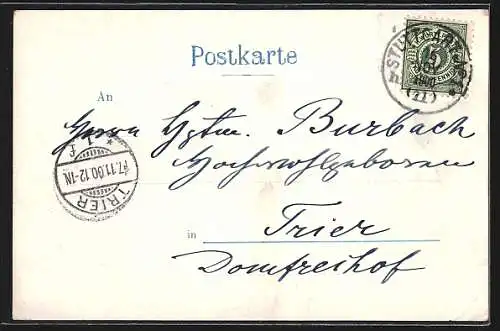 Postkarte
STUTTGART
An
Herrn Hptm. Burbach
Hochwohlgeboren
* 1 *
f
17.11.00.12-1N.
TRIER
in Trier
Domfreihof